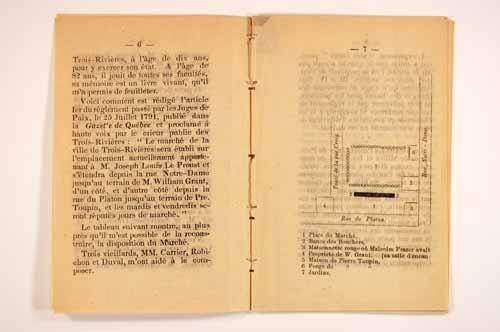 — 6 —
Trois-Rivières, à l'âge de dix ans,
pour y exercer son état. A l'âge de
82 ans, il jouit de toutes ses facultés,
sa mémoire est un livre vivant, qu'il
m'a permis de feuilleter.
Voici comment est rédigé l'article
1er du règlement passé par les Juges de
Paix, le 25 Juillet 1791, publié dans
la Gazette de Québec et proclamé à
haute voix par le crieur public des
Trois-Rivières : " Le marché de la
ville de Trois-Rivières sera établi sur
l'emplacement actuellement apparte-
nant à M. Joseph Louis Le Proust et
s'étendra depuis la rue Notre-Dame
jusqu'au terrain de M. William Grant,
d'un côté, et d'autre côté depuis la
rue du Platon jusqu'au terrain de Pre.
Toupin, et les mardis et vendredis se-
ront réputés jours de marché."
Le tableau suivant montre, au plus
près qu'il m'est possible de la recons-
truire, la disposition du Marché.
Trois vieillards, MM. Carrier, Robi-
chon et Duval, m'ont aidé à le com-
poser.
— 7 —
Rue Notre-Dame.
Rue du Platon.
1 Place du Marché.
2 Bancs des Bouchers.
3 Maisonnette rouge où Malcolm Fraser avait
4 Propriété de W. Grant. (sa salle d'encan
5 Maison de Pierre Toupin.
6 Forge de " "
7 Jardins.